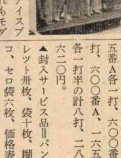 五番A各一打、六〇〇番
打、六〇〇番A、一六五
各一打半の計八打、二八
六二〇円。
▲封入サービス品‖パン
レツ一冊枚、袋十枚、掴
コ、セロ袋六枚、価格表